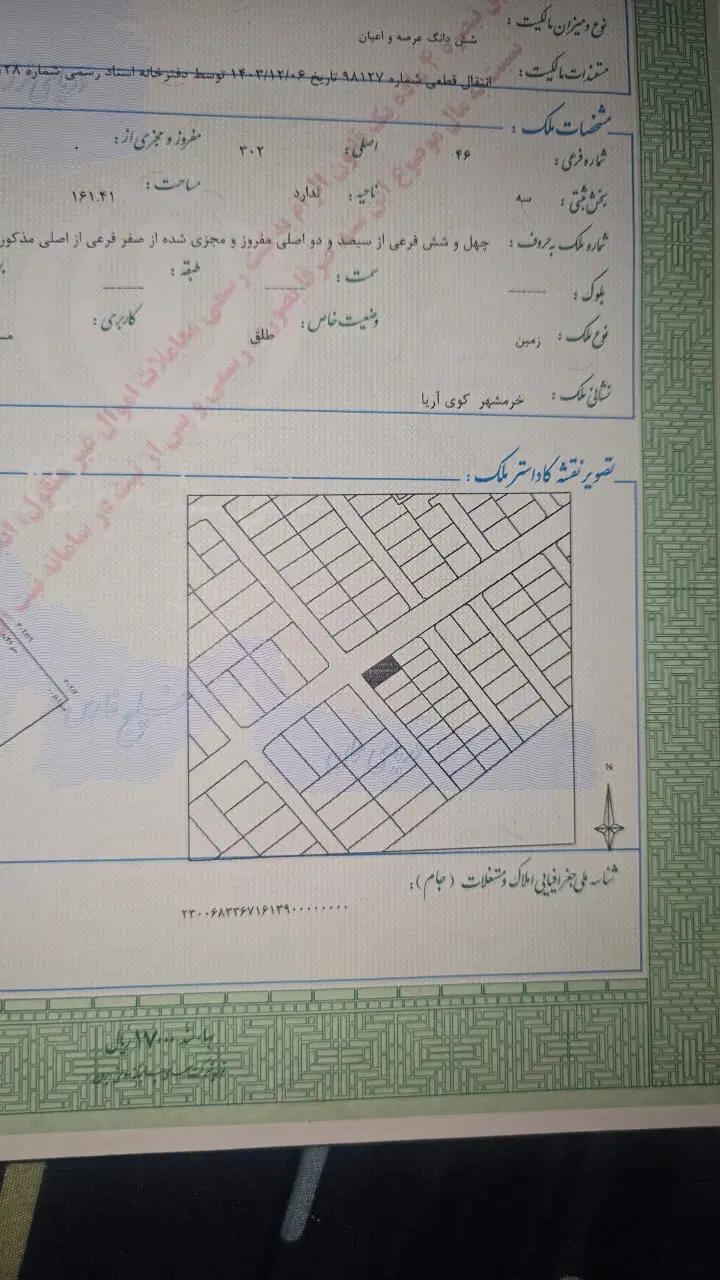 نوع و میزان مالکیت : شش دانگ عرصه و اعیان
مستندات مالکیت : انتقال قطعی شماره ۹۸۱۲۷ تاریخ ۱۴۰۳/۱۲/۰۶ توسط دفترخانه اسناد رسمی شماره
مشخصات ملک :
شماره فرعی : ۴۶ اصلی : ۳۰۲ مفروز و مجزی از : ۰
بخش ثبتی : سه ناحیه : ندارد مساحت : ۱۶۱.۴۱
شماره ملک به حروف : چهل و شش فرعی از سیصد و دو اصلی مفروز و مجزی شده از صفر فرعی از اصلی مذکور
بلوک : ــــــ سمت : ــــــ طبقه : ــــــ
نوع ملک : زمین وضعیت خاص : طلق کاربری :
نشانی ملک : خرمشهر کوی آریا
تصویر نقشه کاداستر ملک :
N
خلیج فارس
شناسه ملی جغرافیایی املاک و مستغلات (جام) :
بهاء سند ۱۷۰۰۰ ریال